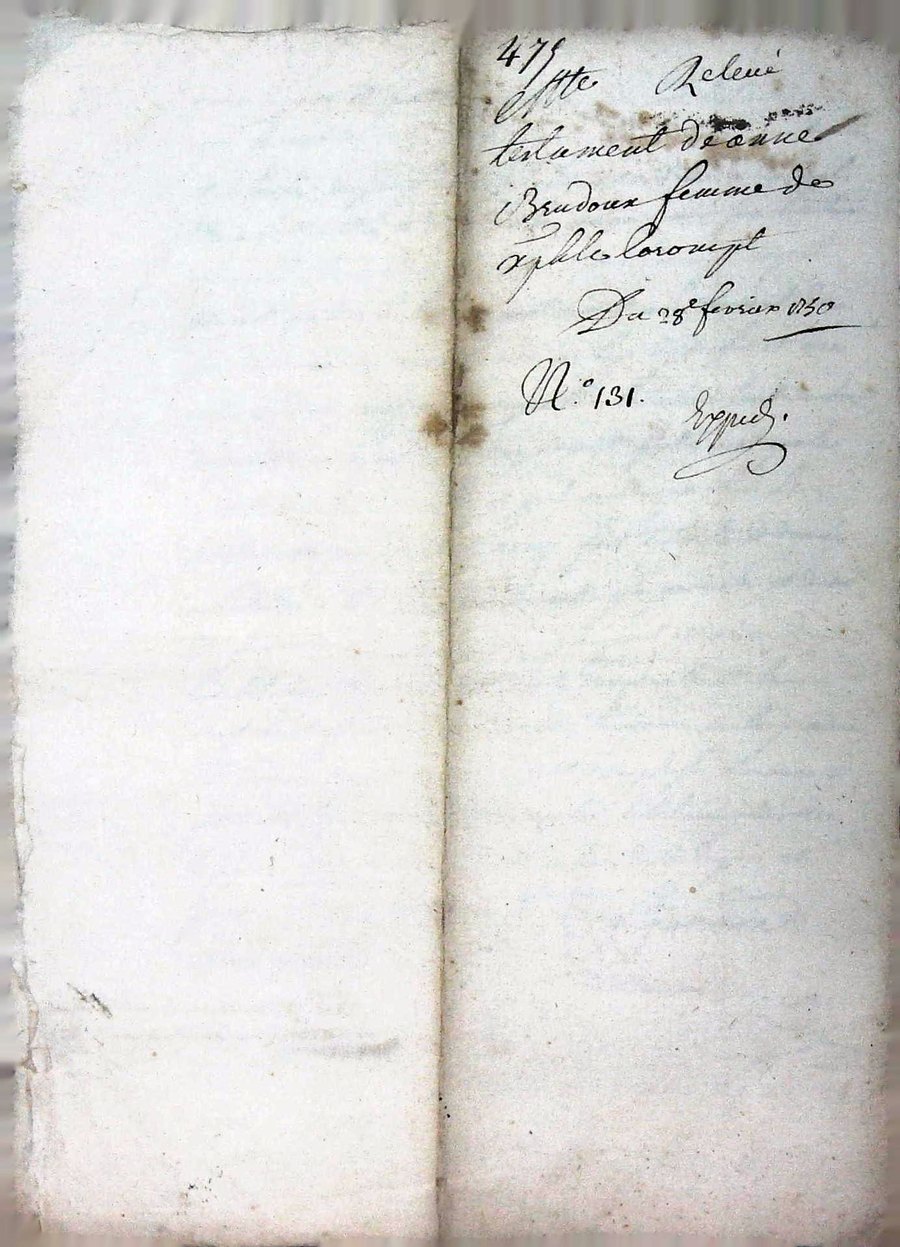 475
Relevé
testament de anne
Beudoux femme de
lacompt
Du 28e fevrier 1750
N.° 131.
Exped.